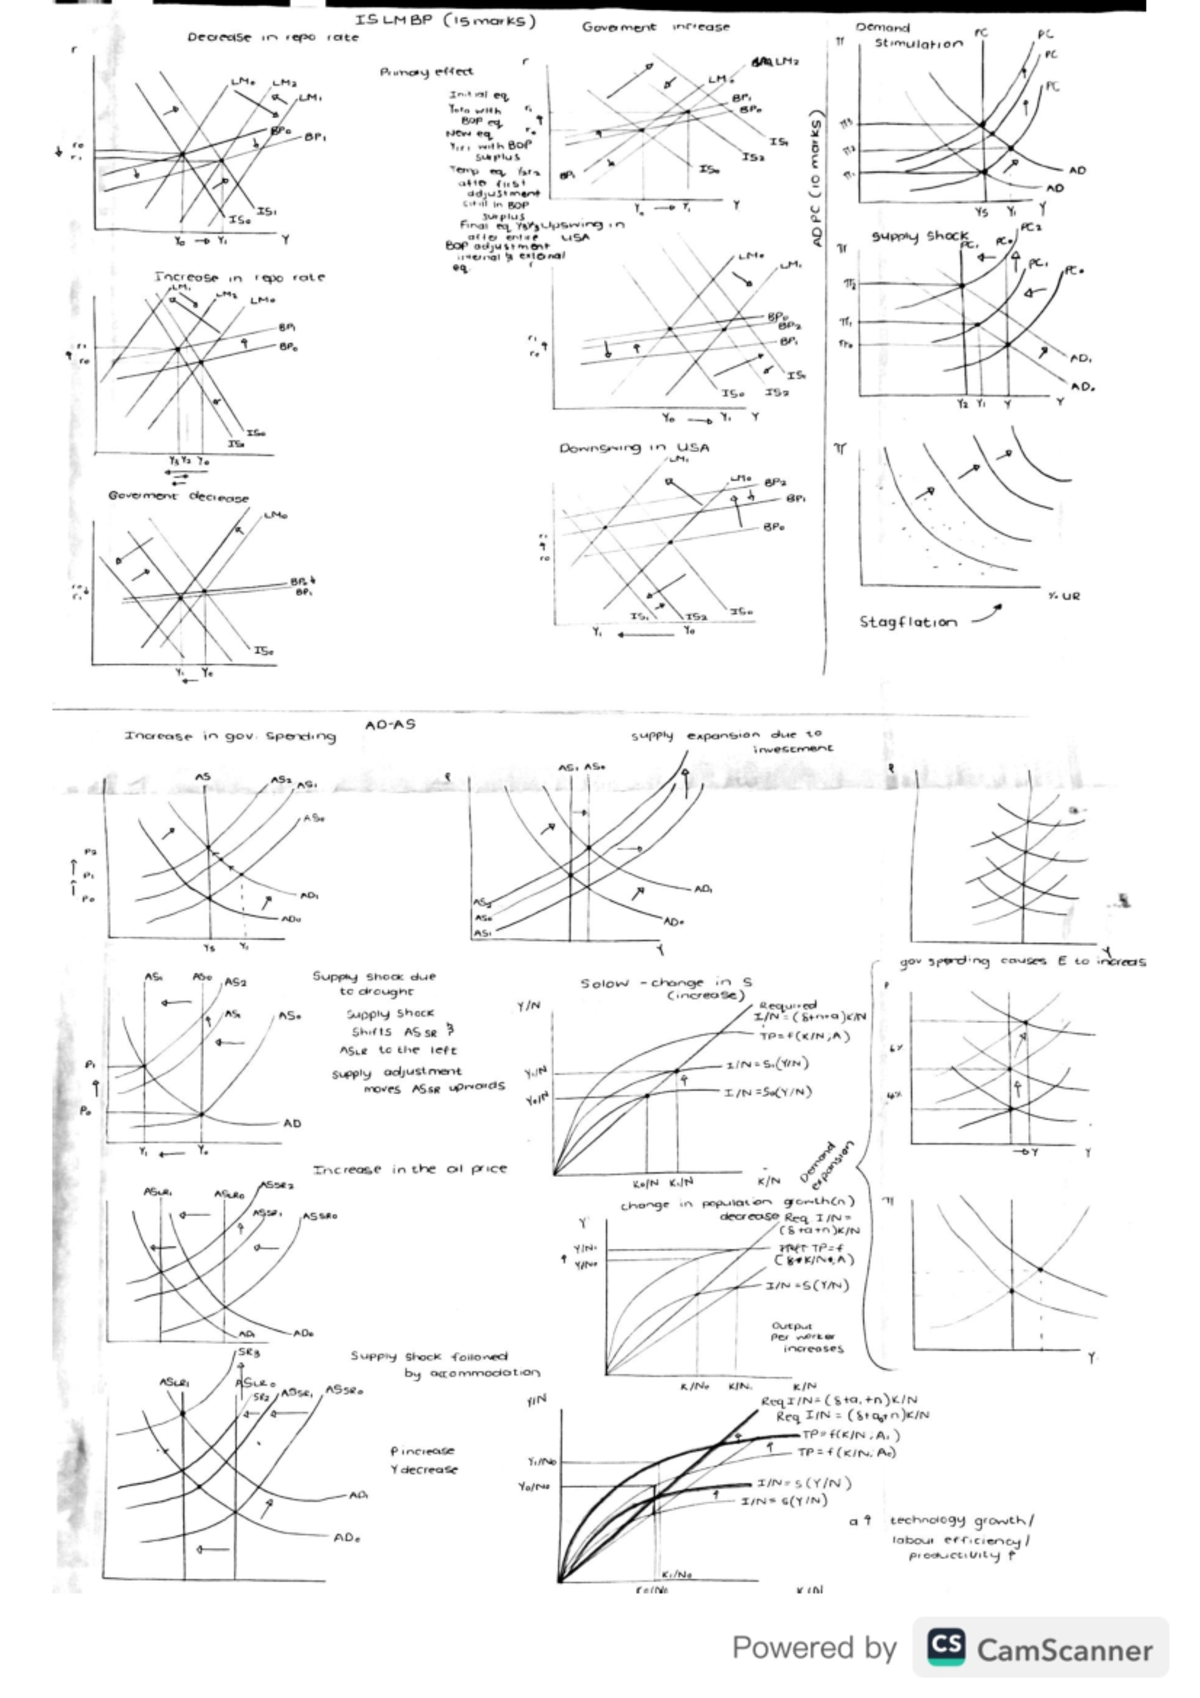 ISLMBP (15 marks)
Decrease in repo rate
r
LM₀
LM₂
LM₁
BP₀
BP₁
r₀
r₁
IS₁
IS₀
Y₀ → Y₁
Y
Primary effect
Initial eq
Y₀r₀ with
BOP eq
New eq
Y₁r₁ with BOP
surplus
Temp eq
after first
adjustment
still in BOP
surplus
Final eq
after entire
BOP adjustment
internal & external
eq.
Goverment increase
r
LM₂
LM₀
BP₁
BP₀
r₁
r₀
BP₁
IS₁
IS₂
IS₀
Y₀ → Y₁
Y
Upswing in
USA
LM₀
LM₁
BP₀
BP₂
BP₁
r₁
r₀
IS₁
IS₀
IS₂
Y₀ → Y₁
Y
Downswing in USA
LM₁
LM₀
BP₂
BP₁
BP₀
r₁
r₀
IS₁
IS₂
IS₀
Y₁ ← Y₀
Increase in repo rate
LM₁
LM₂
LM₀
BP₁
BP₀
r₁
r₀
IS₀
IS₁
Y₁ Y₂ Y₀
Goverment decrease
LM₀
r₀
r₁
BP₁
IS₀
Y₁ Y₀
AD PC (10 marks)
Demand
stimulation
π
PC
PC
PC
PC
π₁
AD
AD
Y₅ Y₁ Y
supply shock
π
PC₁
PC₀
PC₂
PC₁
PC₀
π₂
π₁
π₀
AD₁
AD₀
Y₂ Y₁ Y
Y
π
% UR
Stagflation
AD-AS
Increase in gov. spending
AS
AS₂
AS₁
AS₀
P₂
P₁
P₀
AD₁
AD₀
Y₅ Y₁
supply expansion due to
investment
P
AS₁ AS₀
AS₀
AS₁
AD₁
AD₀
Y
P
Y
gov spending causes E to increas
P
6%
4%
→Y
Y
AS₁
AS₀
AS₂
AS₁
AS₀
P₁
P₀
AD
Y₁ ← Y₀
Supply shock due
to drought
Supply shock
shifts ASSR &
ASLR to the left
supply adjustment
moves ASSR upwards
Solow - change in S
(increase)
Y/N
Required
I/N = (δ+n+a)K/N
TP=f(K/N,A)
I/N=S₁(Y/N)
I/N=S₀(Y/N)
Y₁/N
Y₀/N
K₀/N K₁/N
K/N
Demand
expansion
Increase in the oil price
ASLR₁
ASLR₀
ASSR₂
ASSR₁
ASSR₀
AD₁
AD₀
change in population growth(n)
decrease
Req I/N=
(δ+a+n)K/N
Y
Y/N₁
Y/N₀
TP=f
I/N=S(Y/N)
Output
per worker
increases
K/N₀ K/N₁
K/N
π
Y
Supply shock followed
by accommodation
SR₃
ASLR₁
ASLR₀
SR₂
ASSR₁
ASSR₀
AD₁
AD₀
P increase
Y decrease
Y/N
Req I/N=(δ+a₁+n)K/N
Req I/N = (δ+a₀+n)K/N
TP=f(K/N, A₁)
TP=f(K/N, A₀)
Y₁/N₀
Y₀/N₀
I/N=s(Y/N)
I/N= s(Y/N)
K₁/N₀
K/N
a ↑ technology growth/
labour efficiency/
productivity ↑
Powered by CS CamScanner